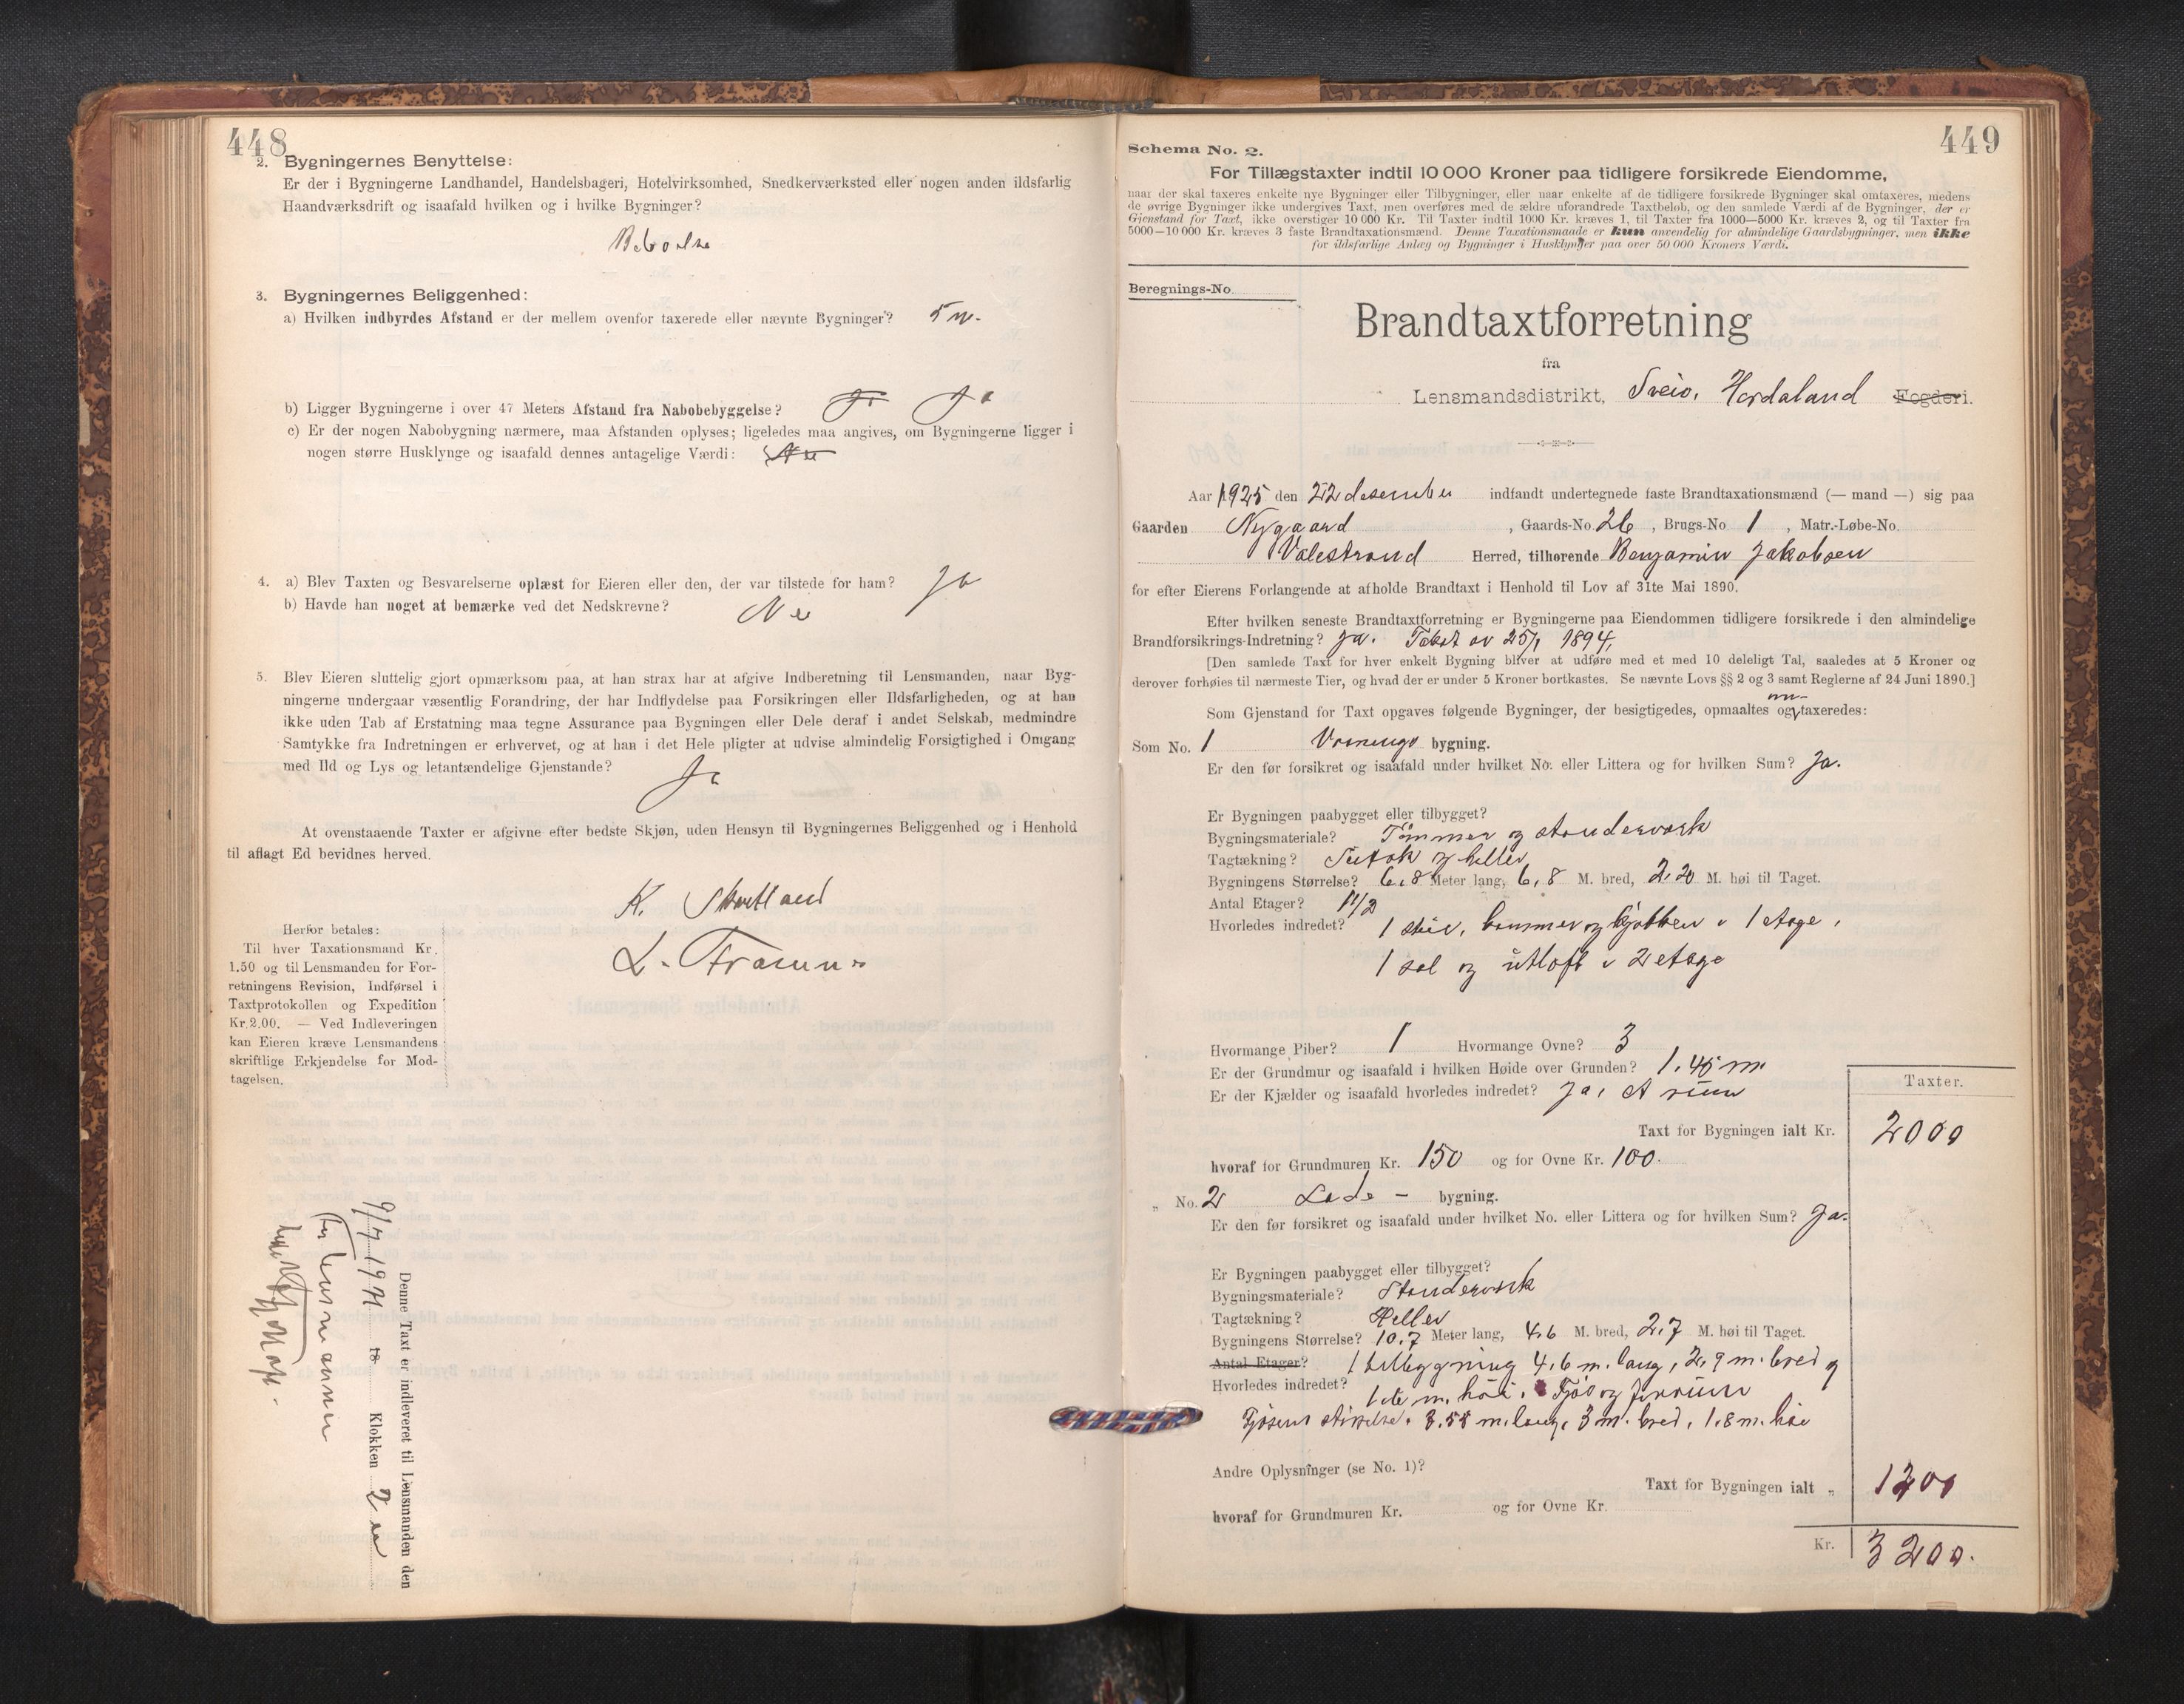 448
2. Bygningernes Benyttelse:
Er der i Bygningerne Landhandel, Handelsbageri, Hotelvirksomhed, Snedkerværksted eller nogen anden ildsfarlig
Haandværksdrift og isaafald hvilken og i hvilke Bygninger?
Beboelse
3. Bygningernes Beliggenhed:
a) Hvilken indbyrdes Afstand er der mellem ovenfor taxerede eller nævnte Bygninger? 5 m.
b) Ligger Bygningerne i over 47 Meters Afstand fra Nabobebyggelse? Ja
c) Er der nogen Nabobygning nærmere, maa Afstanden oplyses; ligeledes maa angives, om Bygningerne ligger i
nogen større Husklynge og isaafald dennes antagelige Værdi:
4. a) Blev Taxten og Besvarelserne oplæst for Eieren eller den, der var tilstede for ham? Ja
b) Havde han noget at bemærke ved det Nedskrevne? Nei
5. Blev Eieren sluttelig gjort opmærksom paa, at han strax har at afgive Indberetning til Lensmanden, naar Byg-
ningerne undergaar væsentlig Forandring, der har Indflydelse paa Forsikringen eller Ildsfarligheden, og at han
ikke uden Tab af Erstatning maa tegne Assurance paa Bygningen eller Dele deraf i andet Selskab, medmindre
Samtykke fra Indretningen er erhvervet, og at han i det Hele pligter at udvise almindelig Forsigtighed i Omgang
med Ild og Lys og letantændelige Gjenstande? Ja
At ovenstaaende Taxter er afgivne efter bedste Skjøn, uden Hensyn til Bygningernes Beliggenhed og i Henhold
til aflagt Ed bevidnes herved.
K.
L.
Herfor betales:
Til hver Taxationsmand Kr.
1.50 og til Lensmanden for For-
retningens Revision, Indførsel i
Taxtprotokollen og Expedition
Kr. 2.00. — Ved Indleveringen
kan Eieren kræve Lensmandens
skriftlige Erkjendelse for Mod-
tagelsen.
Denne Taxt er indleveret til Lensmanden den
Klokken 2
lensmannen
449
Schema No. 2.
For Tillægstaxter indtil 10 000 Kroner paa tidligere forsikrede Eiendomme,
naar der skal taxeres enkelte nye Bygninger eller Tilbygninger, eller naar enkelte af de tidligere forsikrede Bygninger skal omtaxeres, medens
de øvrige Bygninger ikke undergives Taxt, men overføres med de ældre uforandrede Taxtbeløb, og den samlede Værdi af de Bygninger, der er
Gjenstand for Taxt, ikke overstiger 10 000 Kr. Til Taxter indtil 1000 Kr. kræves 1, til Taxter fra 1000—5000 Kr. kræves 2, og til Taxter fra
5000—10 000 Kr. kræves 3 faste Brandtaxationsmænd. Denne Taxationsmaade er kun anvendelig for almindelige Gaardsbygninger, men ikke
for ildsfarlige Anlæg og Bygninger i Husklynger paa over 50 000 Kroners Værdi.
Beregnings-No.
Brandtaxtforretning
fra
Lensmandsdistrikt, Sveio, Hordaland Fogderi.
Aar 1925 den 22 desember indfandt undertegnede faste Brandtaxationsmænd (— mand —) sig paa
Gaarden Nygaard, Gaards-No. 26, Brugs-No 1, Matr.-Løbe-No.
Valestrand Herred, tilhørende Benjamin Jakobsen
for efter Eierens Forlangende at afholde Brandtaxt i Henhold til Lov af 31te Mai 1890.
Efter hvilken seneste Brandtaxtforretning er Bygningerne paa Eiendommen tidligere forsikrede i den almindelige
Brandforsikrings-Indretning? Ja. Takst av 25/1 1894.
[Den samlede Taxt for hver enkelt Bygning bliver at udføre med et med 10 deleligt Tal, saaledes at 5 Kroner og
derover forhøies til nærmeste Tier, og hvad der er under 5 Kroner bortkastes. Se nævnte Lovs §§ 2 og 3 samt Reglerne af 24 Juni 1890.]
Som Gjenstand for Taxt opgaves følgende Bygninger, der besigtigedes, opmaaltes og om-taxeredes:
Som No. 1 Vaanings bygning.
Er den før forsikret og isaafald under hvilket No. eller Littera og for hvilken Sum? Ja.
Er Bygningen paabygget eller tilbygget?
Bygningsmateriale? Tømmer og stenderverk
Tagtækning? og heller
Bygningens Størrelse? 6,8 Meter lang, 6,8 M. bred, 2,20 M. høi til Taget.
Antal Etager? 1 1/2
Hvorledes indredet? 1 stue, kammer og kjøkken i 1 etage,
1 sal og utloft i 2 etage
Hvormange Piber? 1 Hvormange Ovne? 3
Er der Grundmur og isaafald i hvilken Høide over Grunden? 1.45 m
Er der Kjælder og isaafald hvorledes indredet? Ja, et rum
Taxter.
Taxt for Bygningen ialt Kr. 2000
hvoraf for Grundmuren Kr. 150 og for Ovne Kr. 100.
„ No. 2 Lade - bygning.
Er den før forsikret og isaafald under hvilket No. eller Littera og for hvilken Sum? Ja.
Er Bygningen paabygget eller tilbygget?
Bygningsmateriale? Stenderverk
Tagtækning? Heller
Bygningens Størrelse? 10,7 Meter lang, 4,6 M. bred, 2,7 M. høi til Taget.
Antal Etager? 1 tilbygning 4,6 m. lang, 2,9 m. bred og
Hvorledes indredet? m. høi. Fjøs og
Fjøsens størrelse. 8.55 m. lang, 3 m. bred, 1.8 m. høi
Andre Oplysninger (se No. 1)?
Taxt for Bygningen ialt „ 1200
hvoraf for Grundmuren Kr. og for Ovne Kr.
Kr. 3200.